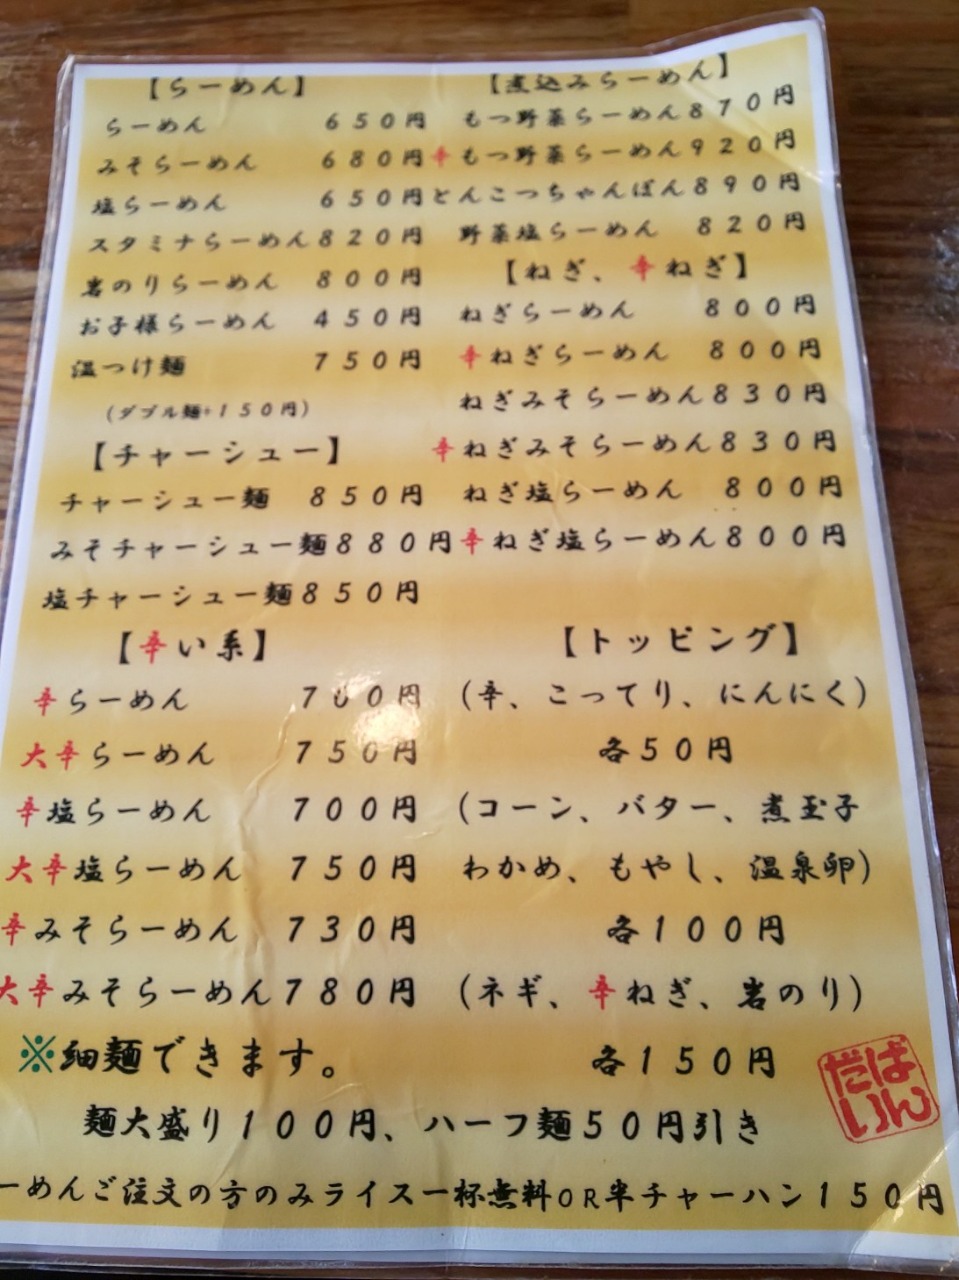 【らーめん】
らーめん 650円
みそらーめん 680円
塩らーめん 650円
スタミナらーめん820円
岩のりらーめん 800円
お子様らーめん 450円
温つけ麺 750円
(ダブル麺+150円)
【チャーシュー】
チャーシュー麺 850円
みそチャーシュー麺880円
塩チャーシュー麺850円
【辛い系】
辛らーめん 700円
大辛らーめん 750円
辛塩らーめん 700円
大辛塩らーめん 750円
辛みそらーめん 730円
大辛みそらーめん780円
【煮込みらーめん】
もつ野菜らーめん870円
辛もつ野菜らーめん920円
とんこつちゃんぽん890円
野菜塩らーめん 820円
【ねぎ、辛ねぎ】
ねぎらーめん 800円
辛ねぎらーめん 800円
ねぎみそらーめん830円
辛ねぎみそらーめん830円
ねぎ塩らーめん 800円
辛ねぎ塩らーめん800円
【トッピング】
(辛、こってり、にんにく)
各50円
(コーン、バター、煮玉子
わかめ、もやし、温泉卵)
各100円
(ネギ、辛ねぎ、岩のり)
各150円
※細麺できます。
麺大盛り100円、ハーフ麺50円引き
ーめんご注文の方のみライス一杯無料OR半チャーハン150円
ばん
だい